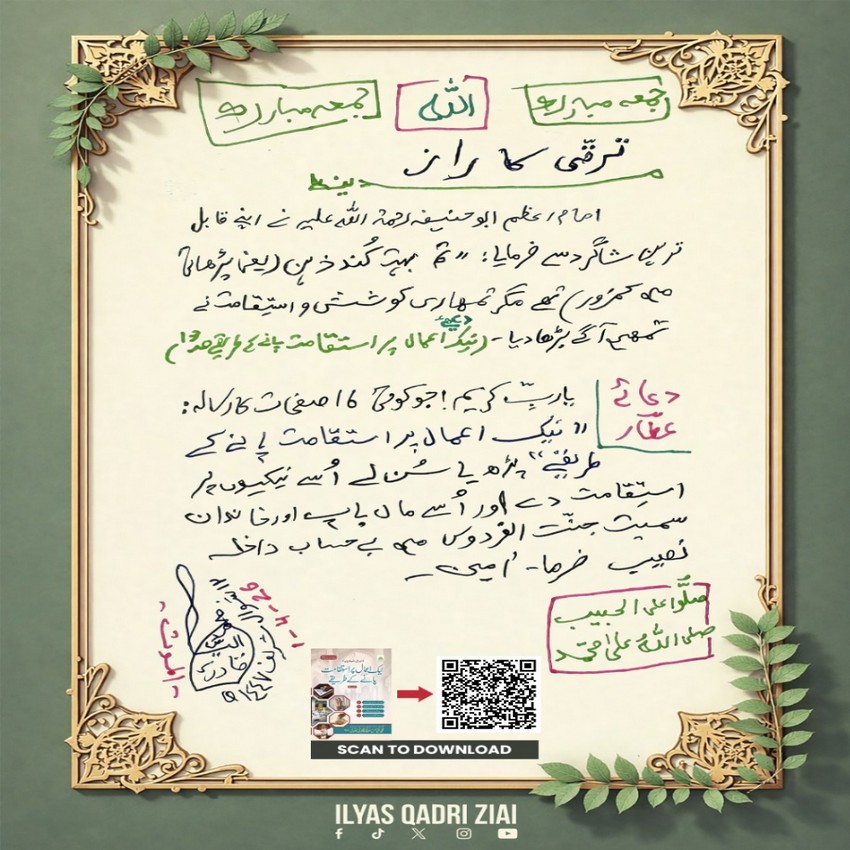 جمعہ مبارک اللہ جمعہ مبارک
ترقّی کا راز
دینے
امامِ اعظم ابو حنیفہ رحمۃ اللہ علیہ نے اپنے قابل
ترین شاگرد سے فرمایا: "تم بہت کُند ذہن (یعنی پڑھائی
میں کمزور) تھے مگر تمہاری کوشش و استقامت نے
تمہیں آگے بڑھا دیا۔ (دیکھئے نیک اعمال پر استقامت پانے کے طریقے
دعائے عطّار
یا ربِّ کریم! جو کوئی 16 صفحات کا رسالہ:
"نیک اعمال پر استقامت پانے کے
طریقے" پڑھ یا سُن لے اُسے نیکیوں پر
استقامت دے اور اُسے ماں باپ اور خاندان
سمیت جنّت الفردوس میں بے حساب داخلہ
نصیب فرما۔ اٰمین۔
صلُّوا علی الحبیب
صلی اللہُ علیٰ محمّد
محمد الیاس قادری
۱۴۴۷
1-4-26
نیک اعمال پر استقامت
پانے کے طریقے
SCAN TO DOWNLOAD
ILYAS QADRI ZIAI